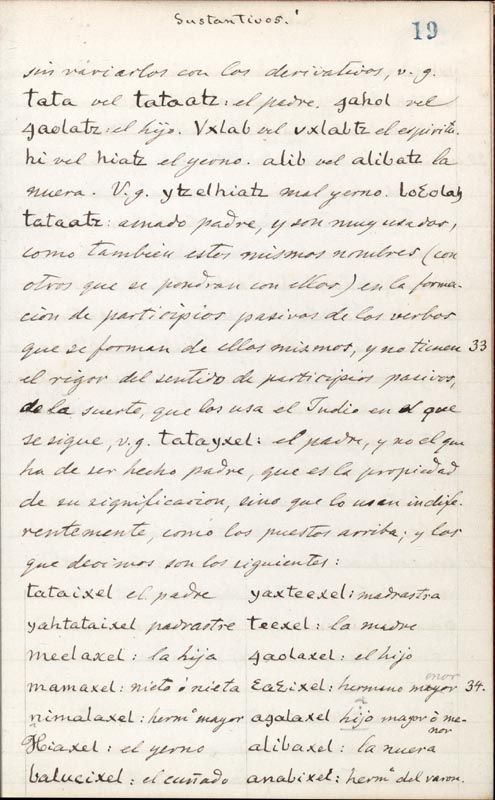 Sustantivos.
19
sin variarlos con los derivativos, v. g.
tata vel tataatz: el padre. 4ahol vel
4aolatz: el hijo. Vxlab vel vxlabtz el espiritu.
hi vel hiatz el yerno. alib vel alibatz la
nuera. V,g. ytzelhiatz mal yerno.
tataatz: amado padre, y son muy usados,
como tambien estos mismos nombres (con
otros que se pondran con ellos) en la forma-
cion de participios pasivos de los verbos
que se forman de ellos mismos, y no tienen 33
el rigor del sentido de participios pasivos,
de la suerte, que los usa el Indio en el que
se sigue, v.g. tatayxel: el padre, y no el que
ha de ser hecho padre, que es la propiedad
de su significacion, sino que lo usan indife-
rentemente, como los puestos arriba; y los
que decimos son los siguientes:
tataixel el padre yaxteexel: madrastra
yahtataixel padrastre teexel: la madre
meelaxel: la hija 4aolaxel: el hijo
enor
mamaxel: nieto ó nieta ɛaɛixel: hermano mayor 34.
nimalaxel: hermº mayor a4alaxel hijo mayor ó me-
nor
Hiaxel: el yerno alibaxel: la nuera
balucixel: el cuñado anabixel: hermª del varon.